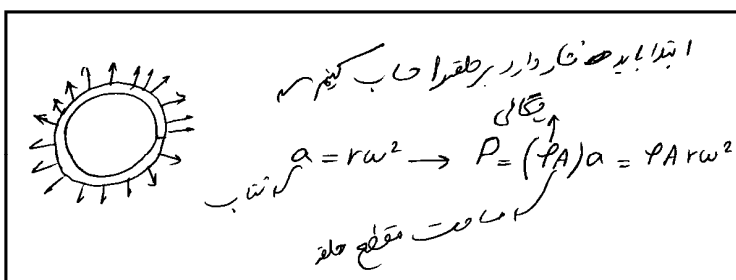 ابتدا باید فشار وارد بر حلقه را حساب کنیم
چگالی
a = rω² → P = (ρA)a = ρArω²
شتاب
مساحت مقطع حلقه